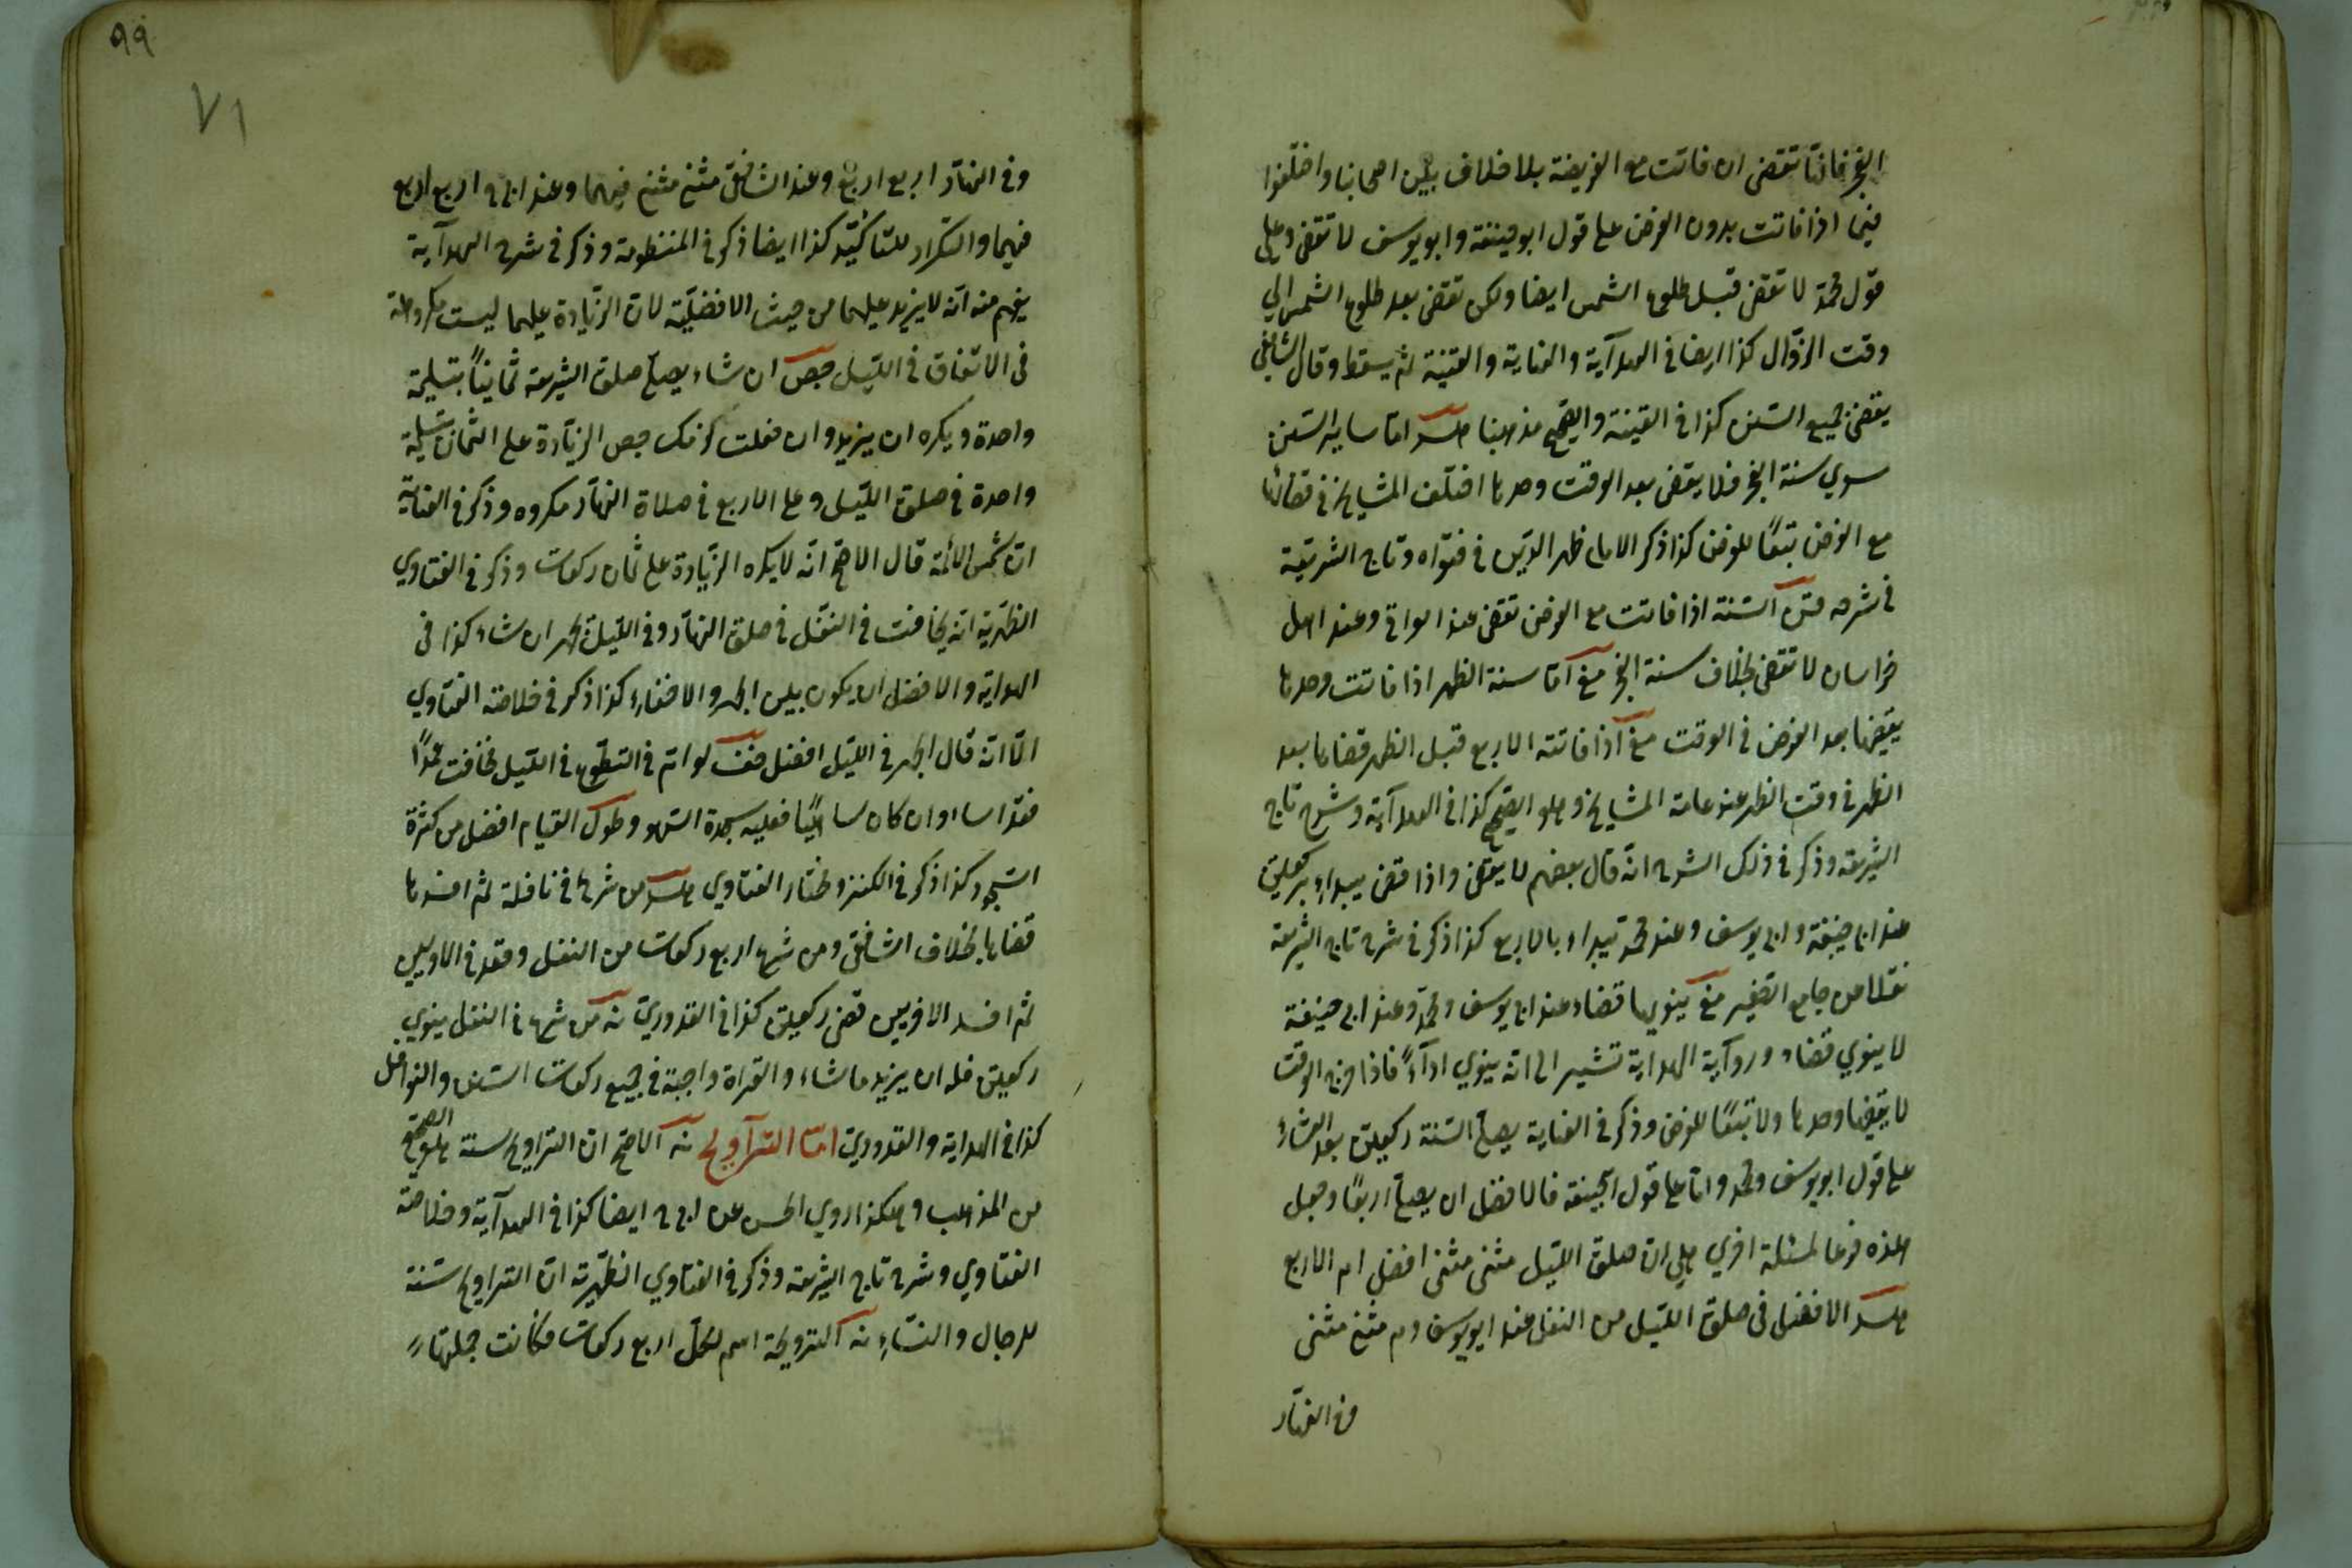 الفجر فانها تقضى ان فاتت مع الفريضة بلا خلاف بين اصحابنا واختلفوا
فيما اذا فاتت بدون الفرض على قول ابو حنيفة وابو يوسف لا تقضى وعلى
قول محمد لا تقضى قبل طلوع الشمس ايضا ولكن تقضى بعد طلوع الشمس الى
وقت الزوال كذا ايضا في الهدآية والعناية والقنية ثم يسقط وقال الشافعى
يقضى جميع السنن كذا في القينة والصحيح مذهبنا اما سائر السنن
سوي سنة الفجر فلا يقضى بعد الوقت وحدها اختلف المشايخ في قضائها
مع الفرض تبعًا للفرض كذا ذكر الامام ظهر الدين في فتواه وتاج الشريعة
في شرحه السنة اذا فاتت مع الفرض تقضى عند العراقي وعند اهل
خراسان لا تقضى بخلاف سنة الفجر اما سنة الظهر اذا فاتت وحدها
يقضيها بعد الفرض في الوقت اذا فاتته الاربع قبل الظهر قضاها بعد
الظهر في وقت الظهر عند عامة المشايخ وهو الصحيح كذا في الهدآية وشرح تاج
الشريعة وذكر في ذلك الشرح انه قال بعضهم لا يقضى واذا قضى يبداء بركعتين
عند ابى حنيفة وابى يوسف وعند محمد يبداء بالاربع كذا ذكر في شرح تاج الشريعة
نقلا من جامع الصغير ينويها قضاء عند ابى يوسف ومحمد وعند ابى حنيفة
لا ينوي قضاء وروآية الهداية تشير الى انه ينوي ادآءً فاذا خرج الوقت
لا يقضيها وحدها ولا تبعًا للفرض وذكر في العناية يصلى السنة ركعتين بعد العشاء
على قول ابو يوسف ومحمد واما على قول ابحنيفة فالافضل ان يصلى اربعًا وجعل
هذه فرعا لمسئلة اخري هي ان صلوة الليل مثنى مثنى افضل ام الاربع
الافضل في صلوة الليل من النفل عند ابو يوسف وم مثنى مثنى
وفي النهار
٩٩
٧١
وفي النهار اربع اربع وعند الشافعى مثنى مثنى فيهما وعند ابى ح اربع اربع
فيهما والتكرار للتاكيد كذا ايضا ذكر في المنظومة وذكر في شرح الهدآية
يفهم منه انه لا يزيد عليهما من حيث الافضلية لان الزيادة عليهما ليست مكروهة
في الاتفاق في الليل ان شاء يصلى صلوة الشريعة ثمانيًا بتسليمة
واحدة ويكره ان يزيد وان فعلت الزيادة على الثمان بتسليمة
واحدة في صلوة الليل وعلى الاربع في صلاة النهار مكروه وذكر في العناية
ان شمس الائمة قال الاصح انه لا يكره الزيادة على ثمان ركعات وذكر في الفتاوي
الظهرية انه يخافت في النفل في صلوة النهار وفي الليل يجهر ان شاء كذا في
الهداية والافضل ان يكون بين الجهر والاخفاء كذا ذكر في خلاصة الفتاوي
الا انه قال الجهر في الليل افضل لو ام في التطوع في الليل فخافت عمدًا
فقد اساء وان كان ساهيًا فعليه سجدة السهو وطول القيام افضل من كثرة
السجود كذا ذكر في الكنز ومختار الفتاوي من شرع في نافلة ثم افسدها
قضاها بخلاف الشافعى ومن شرع اربع ركعات من النفل وقعد في الاوليين
ثم افسد الاخريين قضى ركعتين كذا في القدوري من شرع في النفل ينوي
ركعتين فله ان يزيد ما شاء والقراة واجبة في جميع ركعات السنن والنوافل
كذا في الهداية والقدوري اما التراويح الاصح ان التراويح سنة هو الصحيح
من المذهب وهكذا روي الحسن عن ابى ح ايضا كذا في الهدآية وخلاصة
الفتاوي وشرح تاج الشريعة وذكر في الفتاوي الظهيرية ان التراويح سنة
للرجال والنساء الترويحة اسم لكل اربع ركعات فكانت جملتها